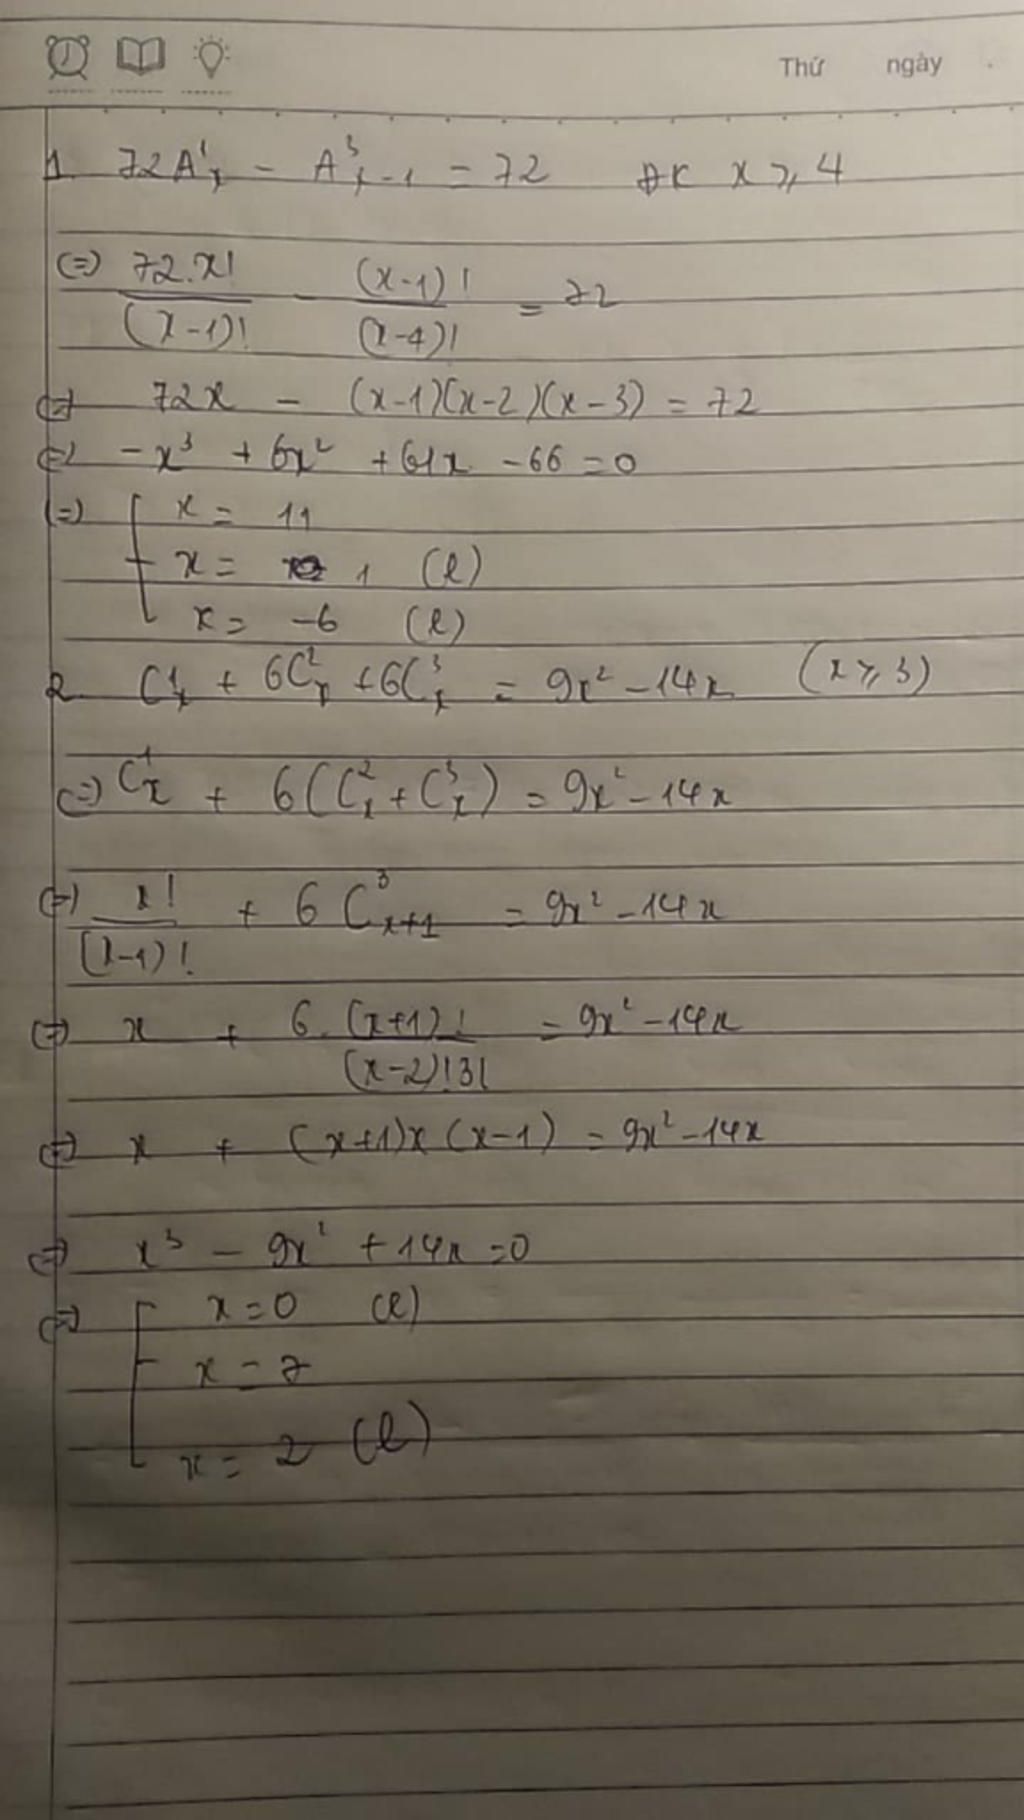 Thứ ngày
1. 72A¹ₓ - A³ₓ₋₁ = 72 ĐK x ⩾ 4
(=) 72.x!/(x-1)! - (x-1)!/(x-4)! = 72
(=) 72x - (x-1)(x-2)(x-3) = 72
(=) -x³ + 6x² + 61x - 66 = 0
(=) [ x = 11
x = 1 (l)
x = -6 (l)
2. C¹ₓ + 6C²ₓ + 6C³ₓ = 9x² - 14x (x ⩾ 3)
(=) C¹ₓ + 6(C²ₓ + C³ₓ) = 9x² - 14x
(=) x!/(x-1)! + 6 C³ₓ₊₁ = 9x² - 14x
(=) x + 6.(x+1)!/(x-2)!3! = 9x² - 14x
(=) x + (x+1)x(x-1) = 9x² - 14x
(=) x³ - 9x² + 14x = 0
(=) [ x = 0 (l)
x = 7
x = 2 (l)